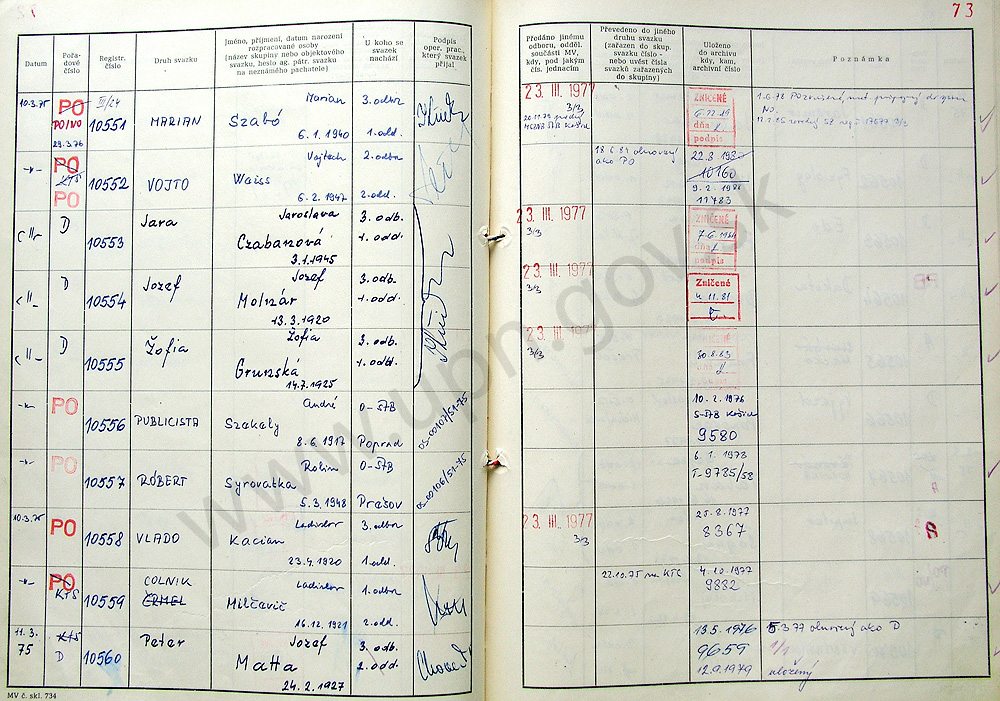 73
Datum
Pořa-
dové
číslo
Registr.
číslo
Druh svazku
Jméno, příjmení, datum narození
rozpracované osoby
(název skupiny nebo objektového
svazku, heslo ag. pátr. svazku
na neznámého pachatele)
U koho se
svazek
nachází
Podpis
oper. prac.,
který svazek
přijal
Předáno jinému
odboru, odděl.
součásti MV,
kdy, pod jakým
čís. jednacím
Převedeno do jiného
druhu svazku
(zařazen do skup.
svazku číslo -
nebo uvést čísla
svazků zařazených
do skupiny)
Uloženo
do archivu
kdy, kam,
archivní číslo
Poznámka
10.3.75
PO
PO/VO
29.3.76
III/24
10551
MARIAN
Marian
Szabó
6.1.1940
3. odbor
1. odd.
23. III. 1977
3/3
ZNIČENÉ
dňa
podpis
PO
KTS
PO
10552
VOJTO
Vojtech
Weiss
6.2.1947
2. odbor
2. odd.
18.6.81 obnovený
ako PO
22.8.1980
10160
9.2.1988
11783
D
10553
Jara
Jaroslava
Czabanová
3.1.1945
3. odb.
1. odd.
23. III. 1977
3/3
ZNIČENÉ
dňa
podpis
D
10554
Jozef
Jozef
Molnár
13.3.1920
3. odb.
1. odd.
23. III. 1977
3/3
Zničené
4.11.81
D
10555
Žofia
Žofia
Grunská
14.7.1925
3. odb.
1. odd.
23. III. 1977
3/3
30.8.83
PO
10556
PUBLICISTA
André
Szakaly
8.6.1917
O-ŠtB
Poprad
OS-00107/51-75
10.2.1976
S-ŠtB Košice
9580
PO
10557
RÓBERT
Robin
Syrovatka
5.3.1948
O-ŠtB
Prešov
OS-00106/51-75
6.1.1978
T-9785/58
10.3.75
PO
10558
VLADO
Ladislav
Kacian
23.4.1920
3. odbor
1. odd.
23. III. 1977
3/3
25.8.1977
8367
PO
KTS
10559
COLNIK
ČRMEL
Ladislav
Milčevič
16.12.1921
1. odbor
2. odd.
22.10.75 na KTS
4.10.1977
9882
11.3.
75
KTS
D
10560
Peter
Jozef
Matta
24.2.1927
3. odb.
2. odd.
13.5.1976
9659
12.9.1979
5.3.77 obnovený ako D
1/1
uložený
MV č. skl. 734
www.upn.gov.sk